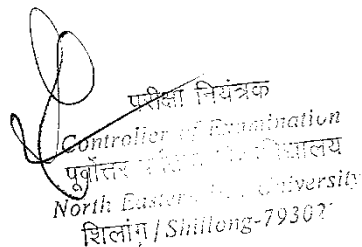 परीक्षा नियंत्रक
Controller of Examination
पूर्वोत्तर
North Eastern University
शिलांग / Shillong-79302